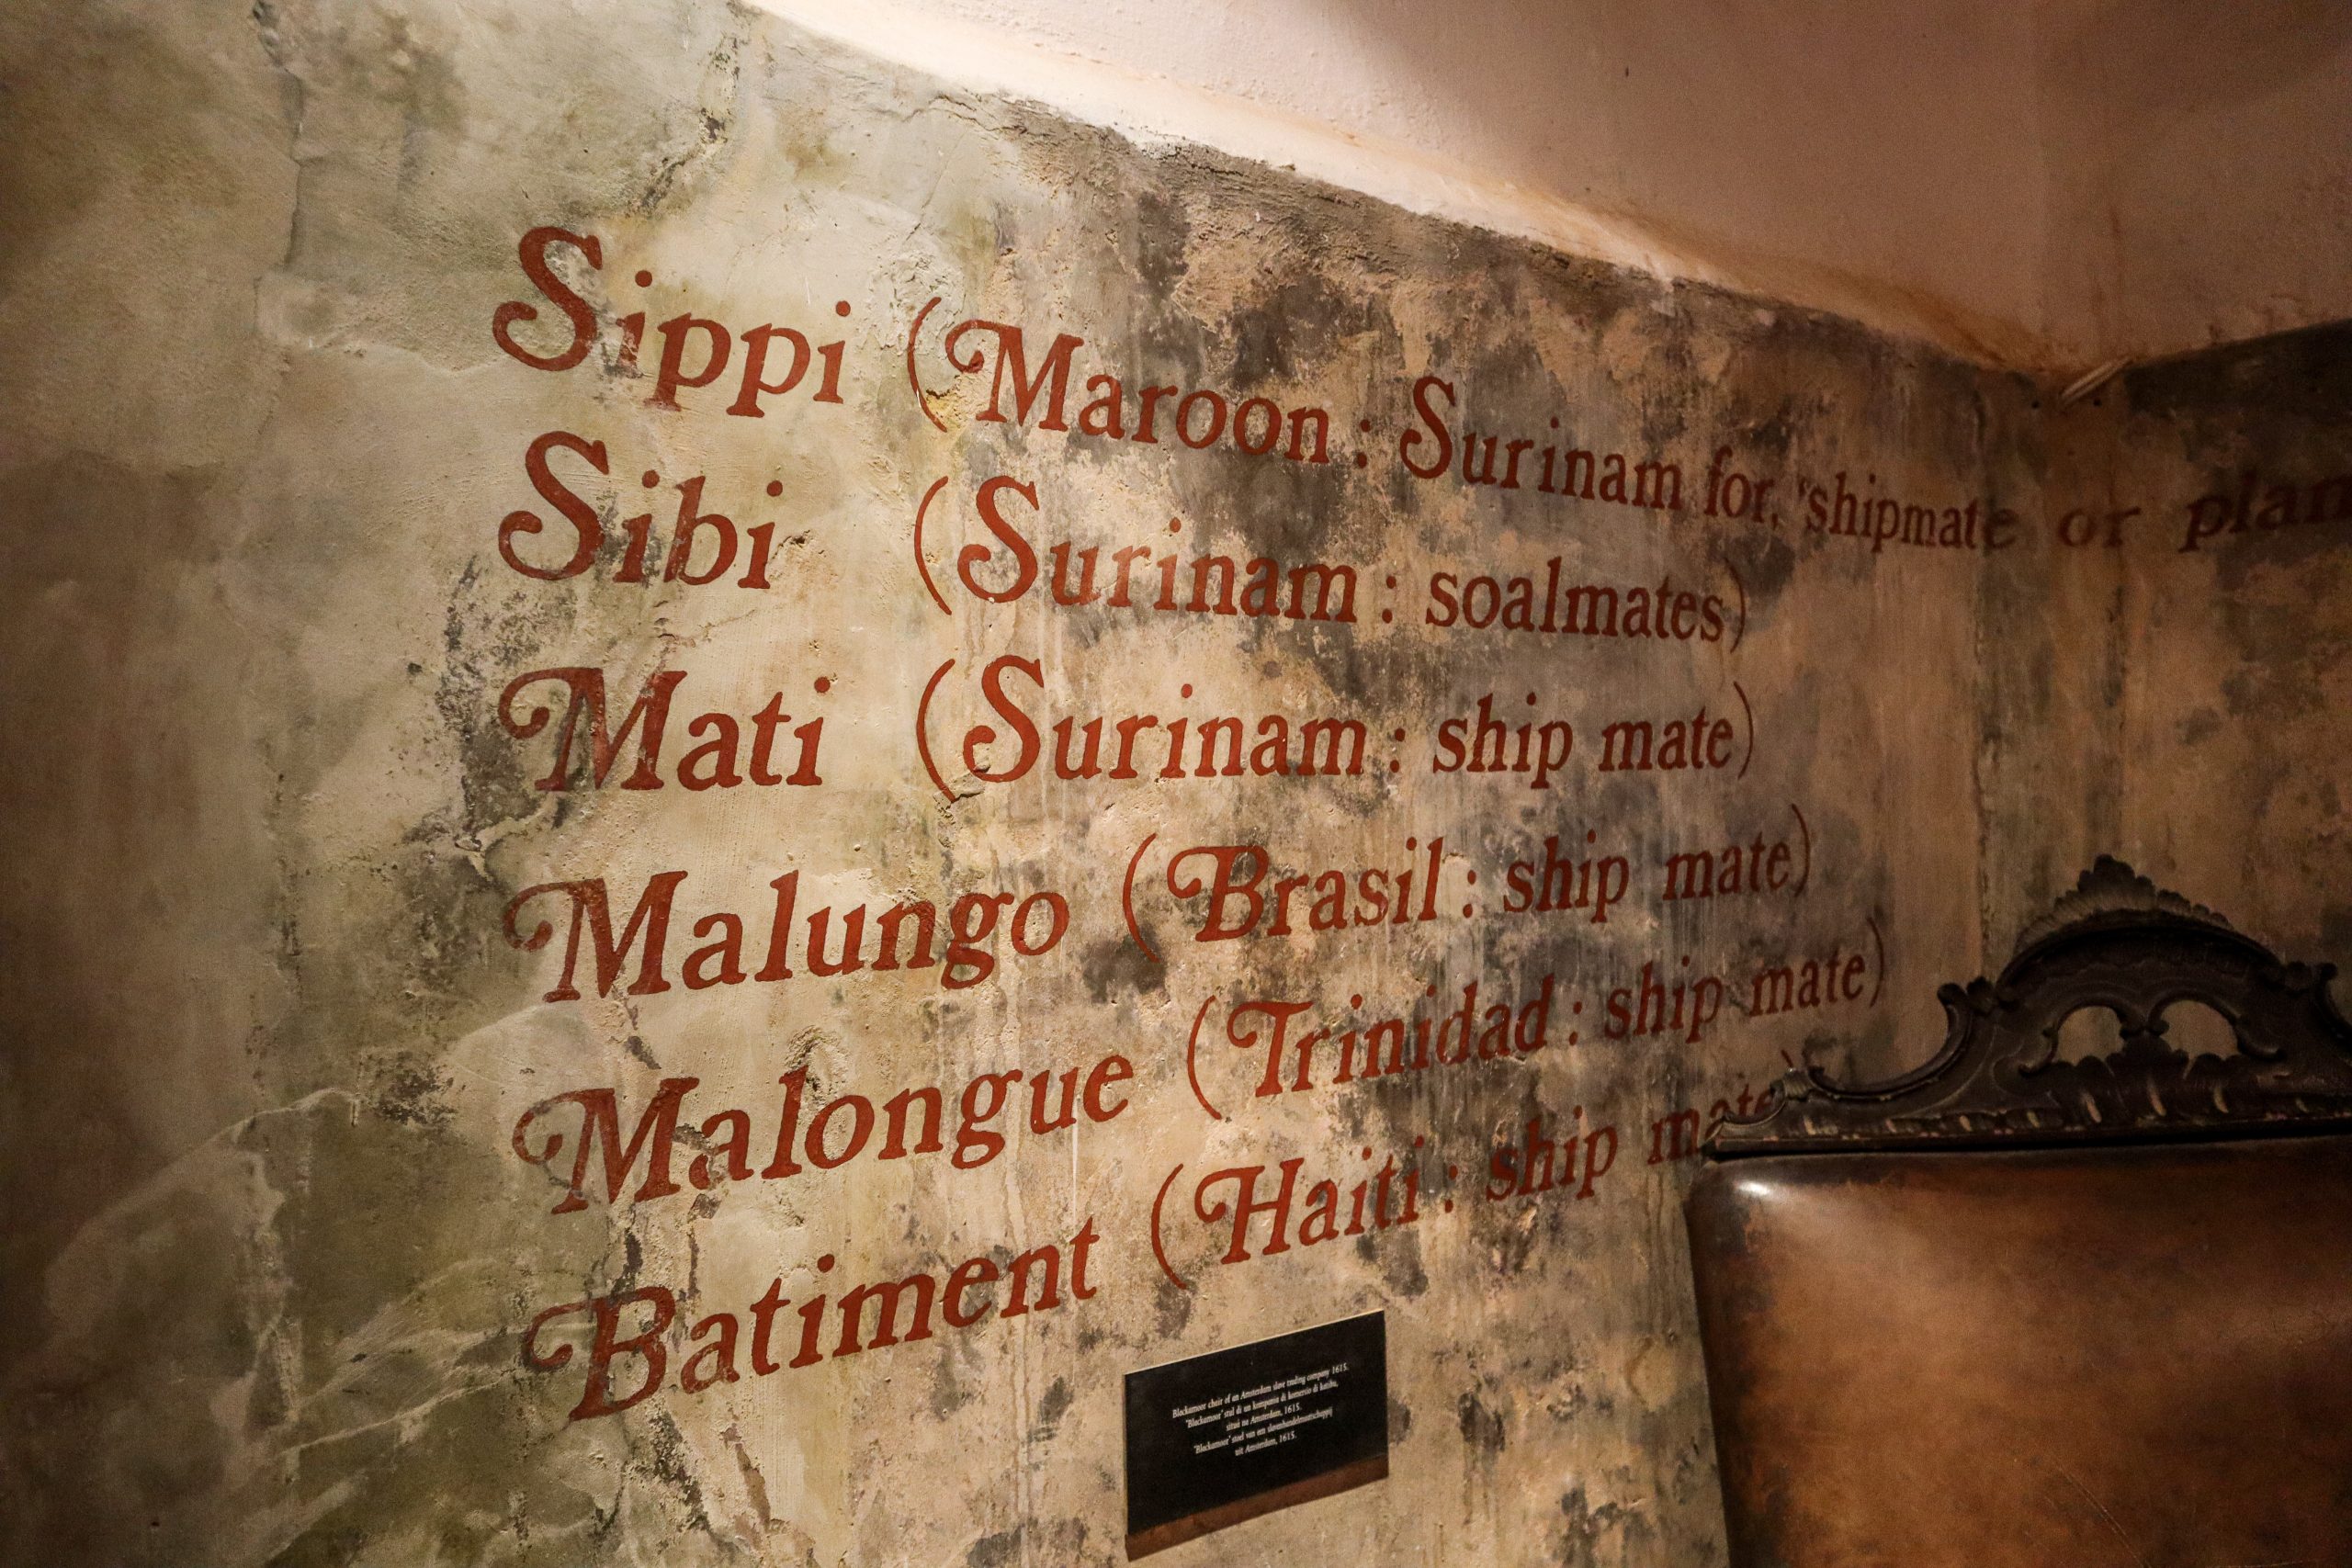 Sippi (Maroon: Surinam for, 'shipmate or plan
Sibi (Surinam: soalmates)
Mati (Surinam: ship mate)
Malungo (Brasil: ship mate)
Malongue (Trinidad: ship mate)
Batiment (Haiti: ship mate)
Blackamoor chair of an Amsterdam slave trading company 1615.
"Blackamoor" stul di un kompania di komersio di katibu,
situá na Amsterdam, 1615.
"Blackamoor" stoel van een slavenhandelmaatschappij
uit Amsterdam, 1615.